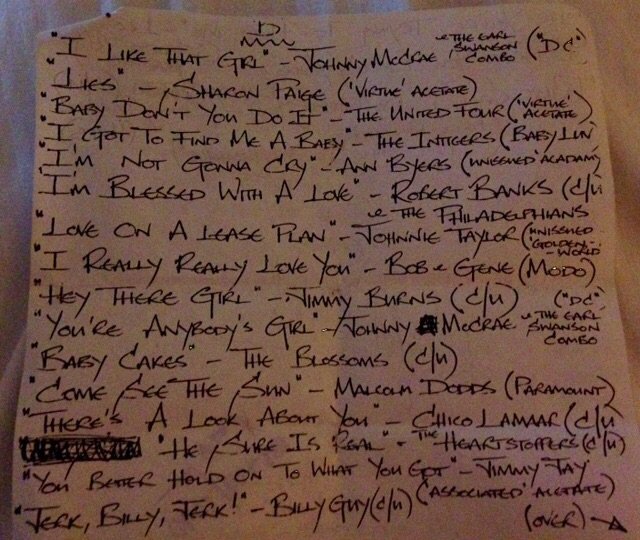 D
"I LIKE THAT GIRL" - JOHNNY McCRAE & THE EARL SWANSON COMBO ("DC")
LIES" - SHARON PAIGE ('VIRTUE' ACETATE)
"BABY DON'T YOU DO IT" - THE UNITED FOUR ('VIRTUE' ACETATE)
"I GOT TO FIND ME A BABY" - THE INTIGERS (BABY LUV)
"I'M NOT GONNA CRY" - ANN BYERS (UNISSUED 'ACADAMY
"I'M BLESSED WITH A LOVE" - ROBERT BANKS (C/U)
& THE PHILADELPHIANS
"LOVE ON A LEASE PLAN" - JOHNNIE TAYLOR (UNISSUED 'GOLDEN-WORLD
"I REALLY REALLY LOVE YOU" - BOB & GENE (MODO)
"HEY THERE GIRL" - JIMMY BURNS (C/U)
"YOU'RE ANYBODY'S GIRL" - JOHNNY McCRAE & THE EARL SWANSON COMBO ("DC")
"BABY CAKES" - THE BLOSSOMS (C/U)
"COME SEE THE SUN" - MALCOLM DODDS (PARAMOUNT)
"THERE'S A LOOK ABOUT YOU" - CHICO LAMAAR (C/U)
"HE SURE IS REAL" - THE HEARTSTOPPERS (C/U)
"YOU BETTER HOLD ON TO WHAT YOU GOT" - JIMMY JAY ('ASSOCIATED' ACETATE)
"JERK, BILLY, JERK!" - BILLY GUY (C/U)
(OVER) →